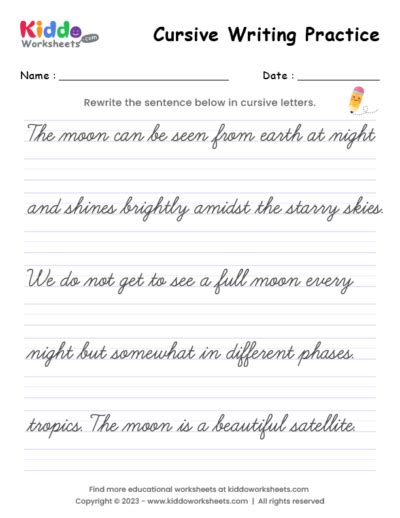 Kiddo
Worksheets.com
Cursive Writing Practice
Name : Date :
Rewrite the sentence below in cursive letters.
The moon can be seen from earth at night
and shines brightly amidst the starry skies.
We do not get to see a full moon every
night but somewhat in different phases.
tropics. The moon is a beautiful satellite.
Find more educational worksheets at kiddoworksheets.com
Copyright © 2023 - www.kiddoworksheets.com | All rights reserved